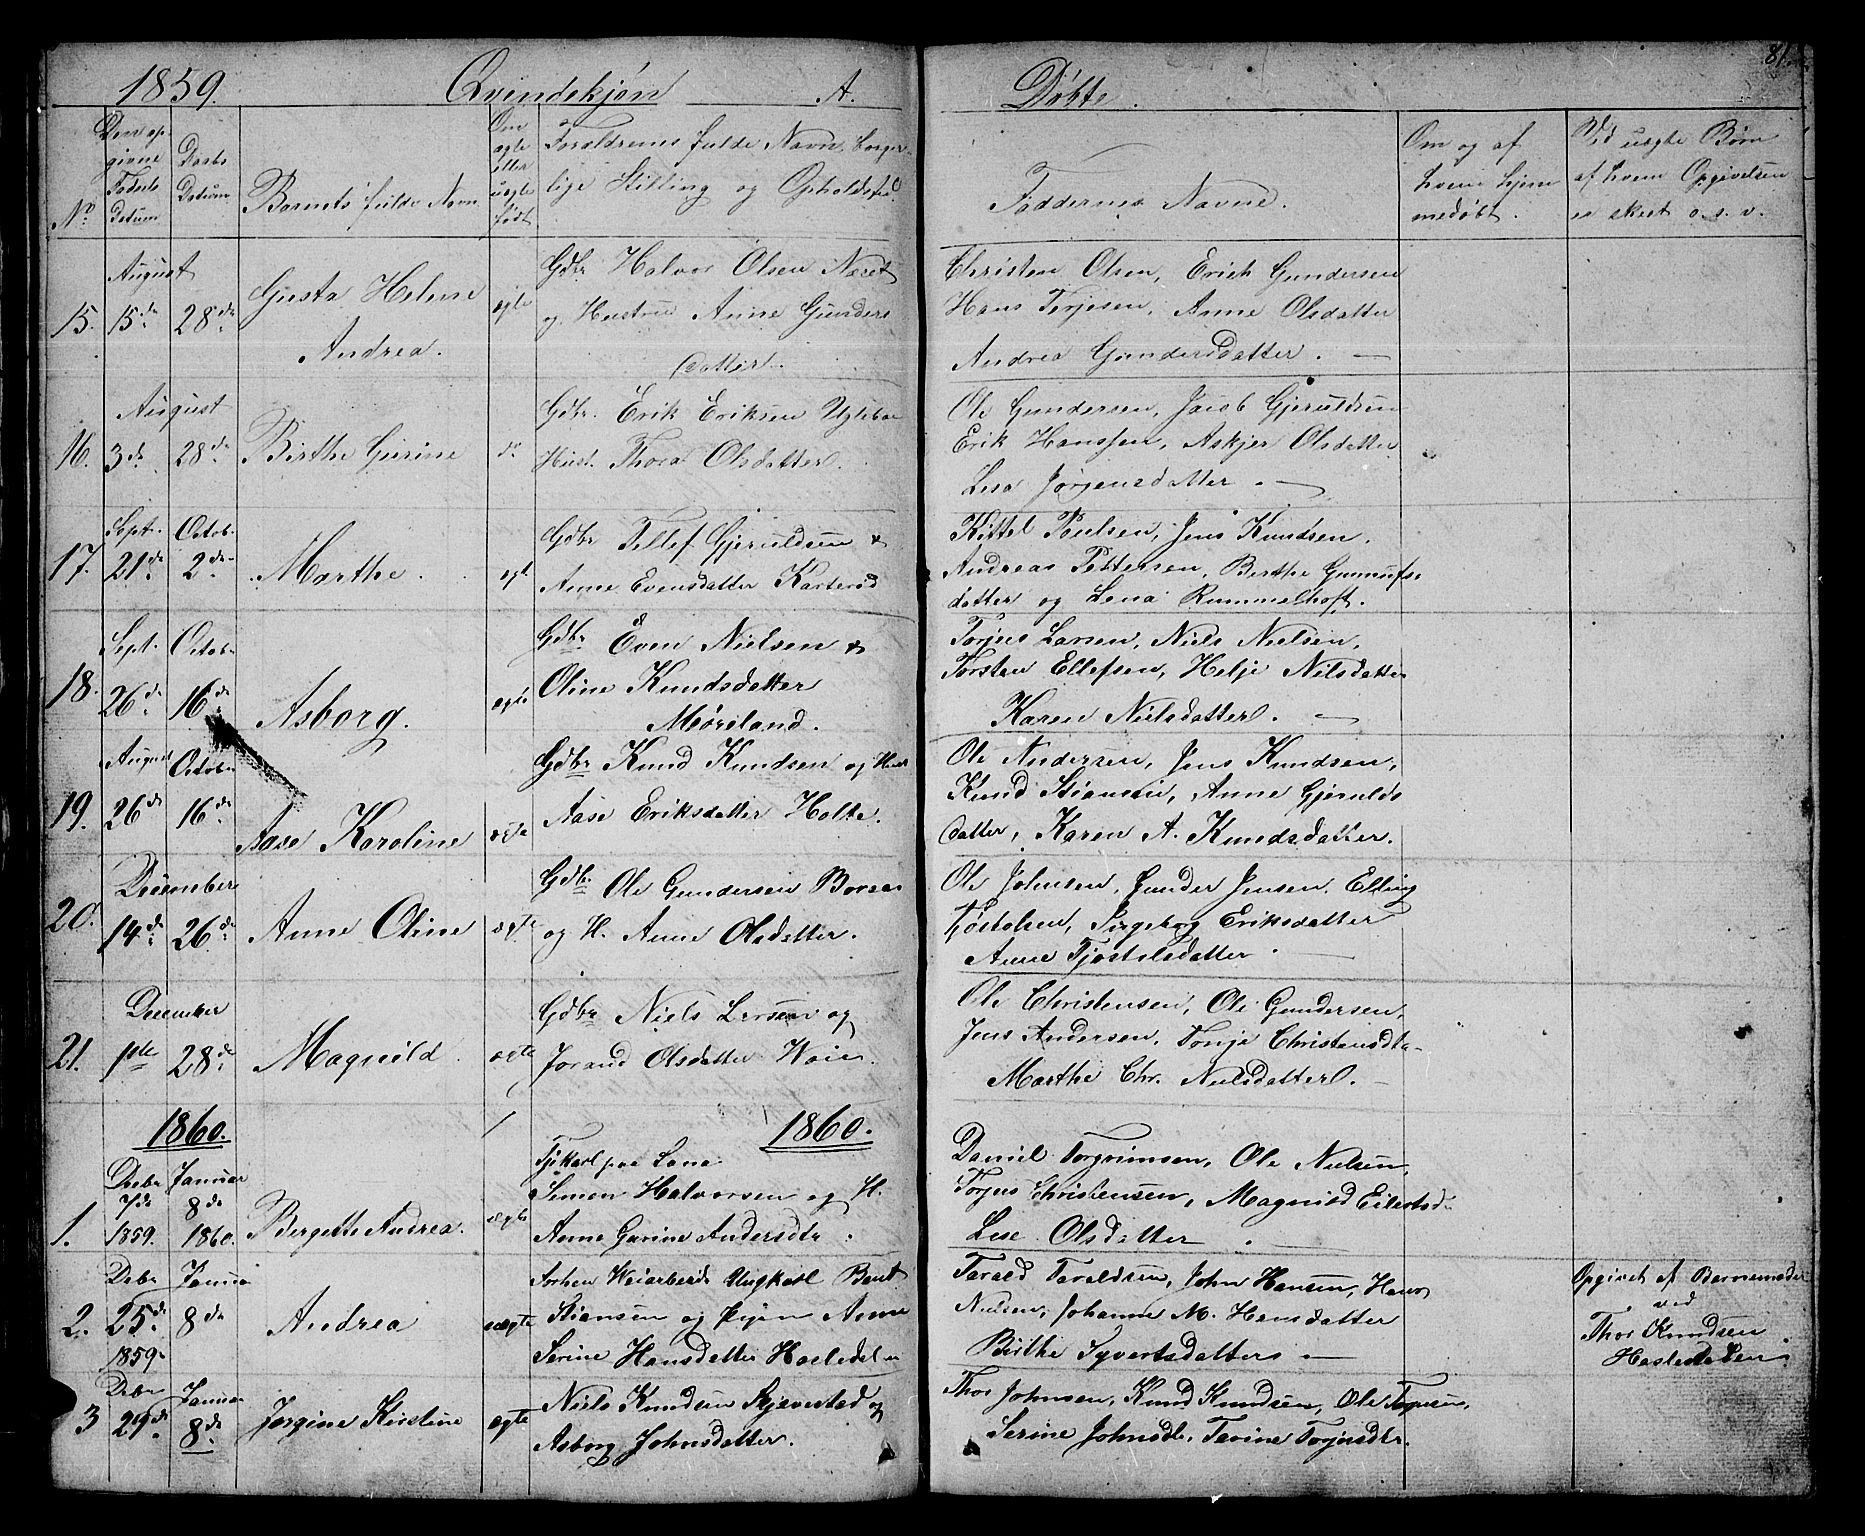 81.
1859. Qvindekjøn A. Døbte.
No
Den op-
givne
Fødsels
Datum
Daabs
Datum
Barnets fulde Navn
Om
ægte
eller
uægte
født
Forældrenes fulde Navn, borger-
lige Stilling og Opholdsted
Faddernes Navne.
Om og af
hvem hjem
medøbt.
Ved uægte Børn
af hvem Opgivelsen
er skeet o. s. v.
August
15. 15de 28de Gusta Helene
Andrea.
ægte
Gdbr Halvor Olsen Næset
og Hustrue Anne Gunders
datter.
Christen Olsen, Erich Gundersen
Hans Terjesen, Anne Olsdatter
Andrea Gundersdatter. —
August
16. 3de 28de Birthe Gurine do
Gdbr. Erik Eriksen
Hust. Thora Olsdatter.
Ole Gundersen, Jacob Gjeruldsen
Erik Hanssen, Askjer Olsdatter
Lisa Jørgensdatter. —
Sept. Octob.
17. 21de 2den Marthe. ægt.
Gdbr Tellef Gjeruldsen &
Anne Evensdatter Karterød
Kittel Poulsen, Jens Knudsen.
Andreas Pettersen, Berthe Gunnufs-
datter og Lena Rummelhoft.
Sept. Octob.
18. 26de 16de Asborg. ægte
Gdbr Even Nielsen &
Oline Knudsdatter
Møreland.
Torjus Larsen, Niels Nielsen,
Torsten Ellefsen, Helje Nilsdatter
Karen Nielsdatter. —
August October
19. 26de 16de Aase Karoline ægte
Gdbr Knud Knudsen og Hust
Aase Eriksdatter Holte.
Ole Andersen, Jens Knudsen,
Knud Stiansen, Anne Gjerulds
datter, Karen A. Knudsdatter.
December
20. 14de 26de Anne Oline ægte
Gdb. Ole Gundersen Boraas
og H. Anne Olsdatter.
Ole Johnsen, Gunder Jensen, Elling
Tjøstolsen, Ingeborg Eriksdatter
Anne Tjøstolsdatter
December
21. 1ste 28de Magnild. ægte
Gdbr Niels Larsen og
Jorand Olsdatter Waie.
Ole Christensen, Ole Gundersen,
Jens Andersen, Tonje Christensdtr
Marthe Chr. Nielsdatter. —
1860. 1860.
Debr Januar
7de 8de
1. 1859. 1860. Bergette Andrea. ægte
paa Lana
Simon Halvorsen og H.
Anne Gurine Andersdtr.
Daniel Torgrimsen, Ole Nielsen,
Torjus Christensen, Magnild Eilertsd.
Lise Olsdatter
Debr Januar
2. 25de 8de Andrea uægte
1859.
Ungkarl Bent
Stiansen og Pigen Anne
Serine Hansdatter Hasledalen
Tarald Taraldsen, John Hansen, Hans
Nielsen, Johanne M. Hansdatter
Birthe Syvertsdatter. —
Opgivet af Barnemoder
ved
Thor Knudsen
Hasledalen.
Debr Januar
3 29de 8de Jørgine Kirstine ægte
Niels Knudsen Skjevestad og
Asborg Johnsdatter.
Thor Johnsen, Knud Knudsen, Ole Torjusen,
Serine Johnsdtr, Tarine Torjusdtr.